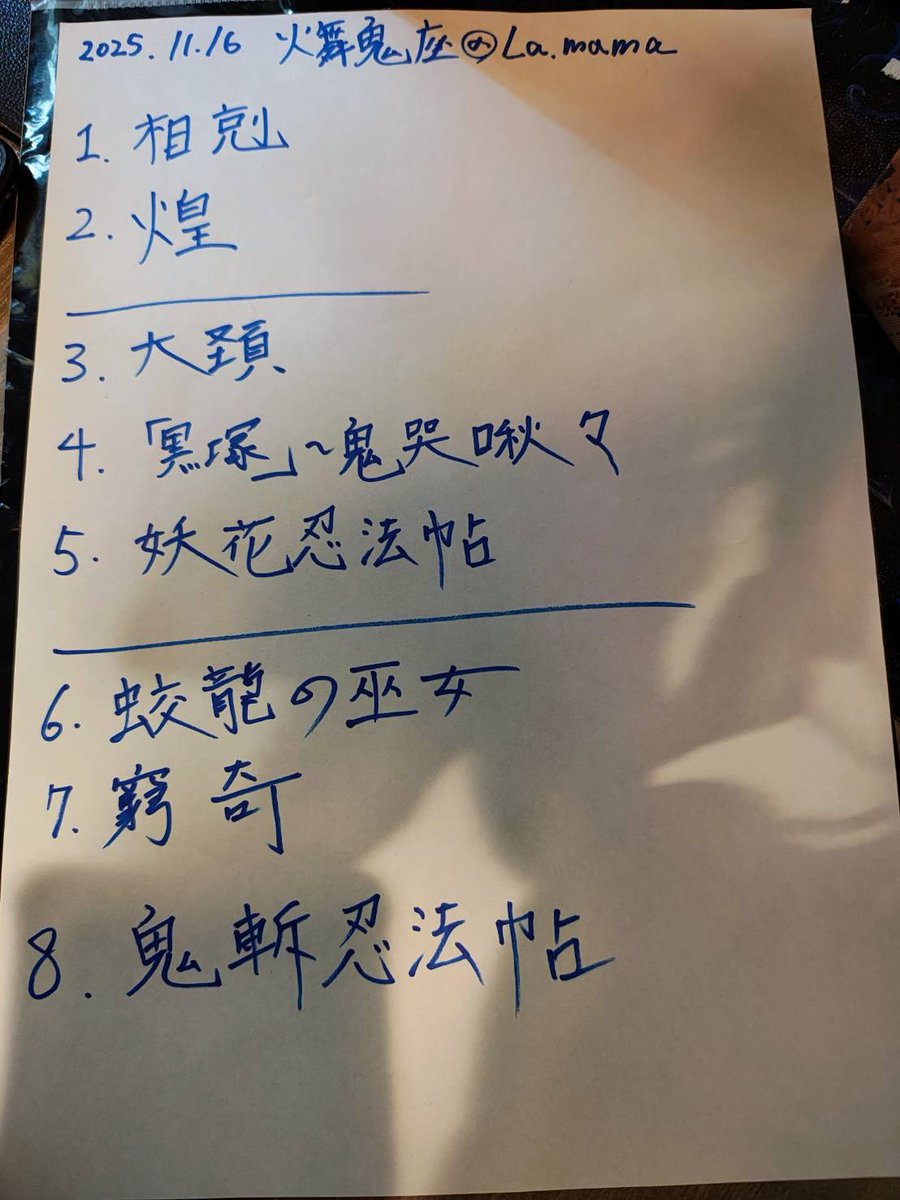 2025.11.16 火舞鬼座@La.mama
1. 相剋
2. 煌
3. 大頚
4. 「黒塚」~鬼哭啾々
5. 妖花忍法帖
6. 蛟龍の巫女
7. 窮奇
8. 鬼斬忍法帖